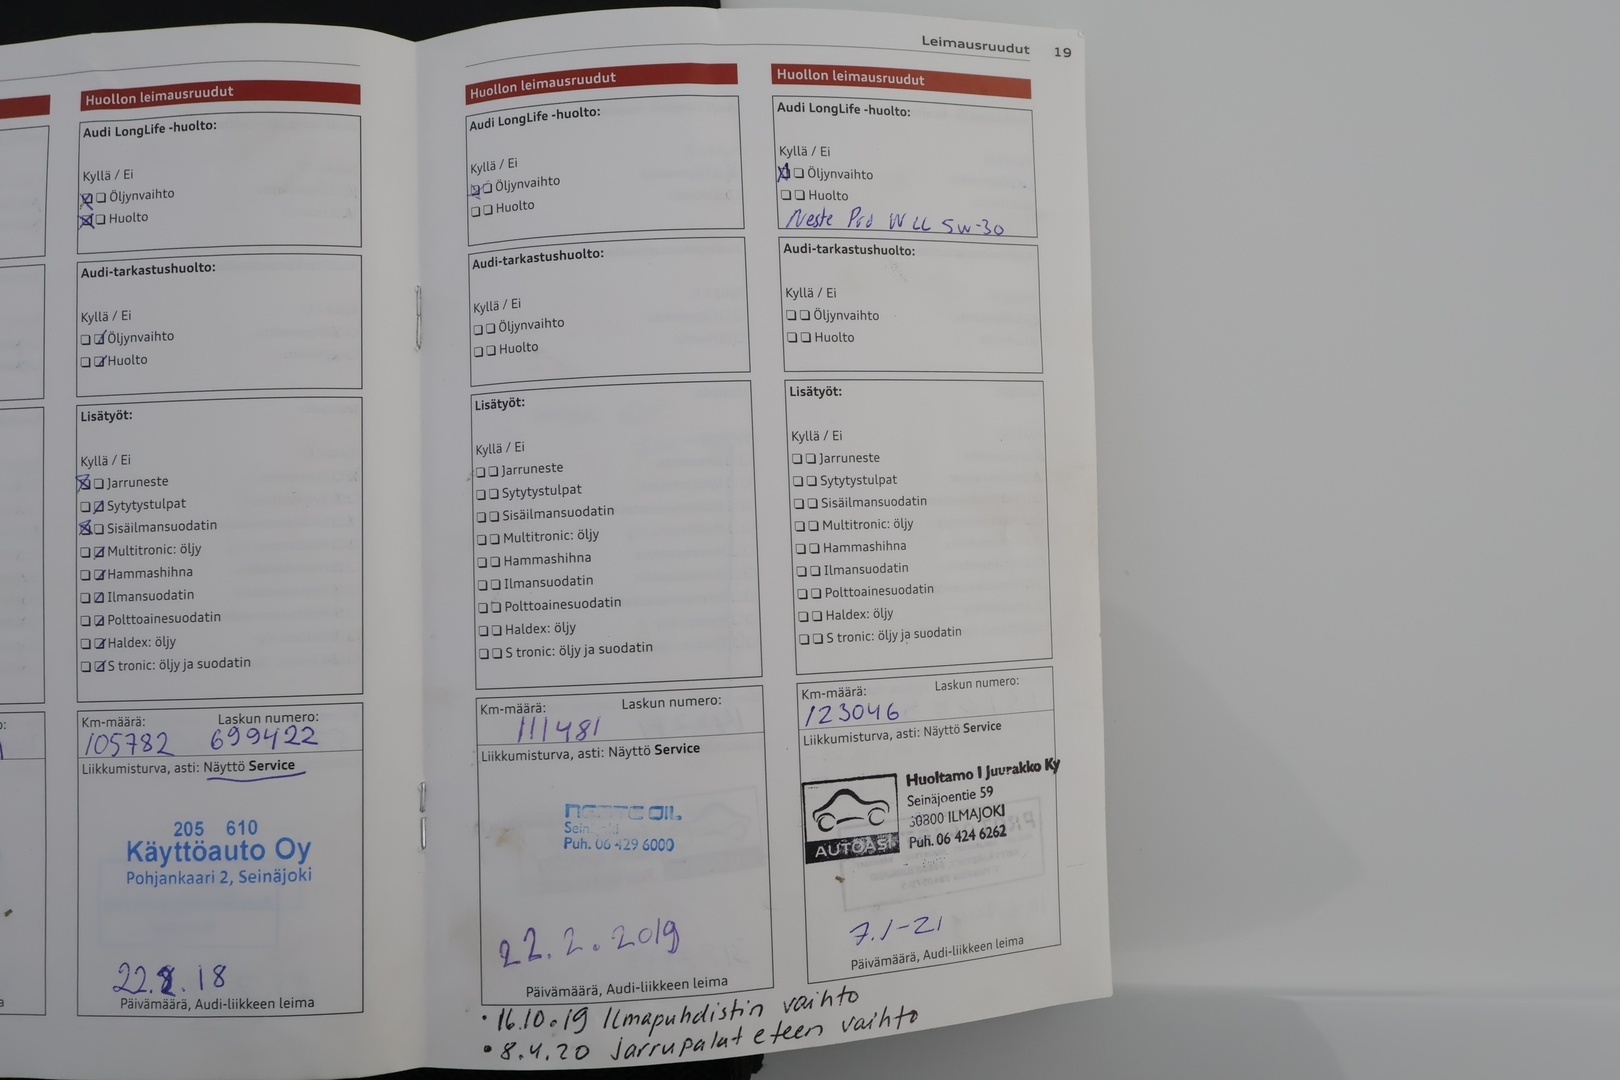 Leimausruudut 19
Huollon leimausruudut
Audi LongLife -huolto:
Kyllä / Ei
Öljynvaihto
Huolto
Audi-tarkastushuolto:
Kyllä / Ei
Öljynvaihto
Huolto
Lisätyöt:
Kyllä / Ei
Jarruneste
Sytytystulpat
Sisäilmansuodatin
Multitronic: öljy
Hammashihna
Ilmansuodatin
Polttoainesuodatin
Haldex: öljy
S tronic: öljy ja suodatin
Km-määrä: Laskun numero:
105782 699422
Liikkumisturva, asti: Näyttö Service
205 610
Käyttöauto Oy
Pohjankaari 2, Seinäjoki
22.8.18
Päivämäärä, Audi-liikkeen leima
Huollon leimausruudut
Audi LongLife -huolto:
Kyllä / Ei
Öljynvaihto
Huolto
Audi-tarkastushuolto:
Kyllä / Ei
Öljynvaihto
Huolto
Lisätyöt:
Kyllä / Ei
Jarruneste
Sytytystulpat
Sisäilmansuodatin
Multitronic: öljy
Hammashihna
Ilmansuodatin
Polttoainesuodatin
Haldex: öljy
S tronic: öljy ja suodatin
Km-määrä: Laskun numero:
111481
Liikkumisturva, asti: Näyttö Service
OIL
Puh. 06 429 6000
22.2.2019
Päivämäärä, Audi-liikkeen leima
• 16.10.19 Ilmapuhdistin vaihto
• 8.4.20 jarrupalat eteen vaihto
Huollon leimausruudut
Audi LongLife -huolto:
Kyllä / Ei
Öljynvaihto
Huolto
Neste Pro W LL 5W-30
Audi-tarkastushuolto:
Kyllä / Ei
Öljynvaihto
Huolto
Lisätyöt:
Kyllä / Ei
Jarruneste
Sytytystulpat
Sisäilmansuodatin
Multitronic: öljy
Hammashihna
Ilmansuodatin
Polttoainesuodatin
Haldex: öljy
S tronic: öljy ja suodatin
Km-määrä: Laskun numero:
123046
Liikkumisturva, asti: Näyttö Service
Huoltamo I Juurakko Ky
Seinäjoentie 59
60800 ILMAJOKI
Puh. 06 424 6262
AUTOASI
7.1-21
Päivämäärä, Audi-liikkeen leima